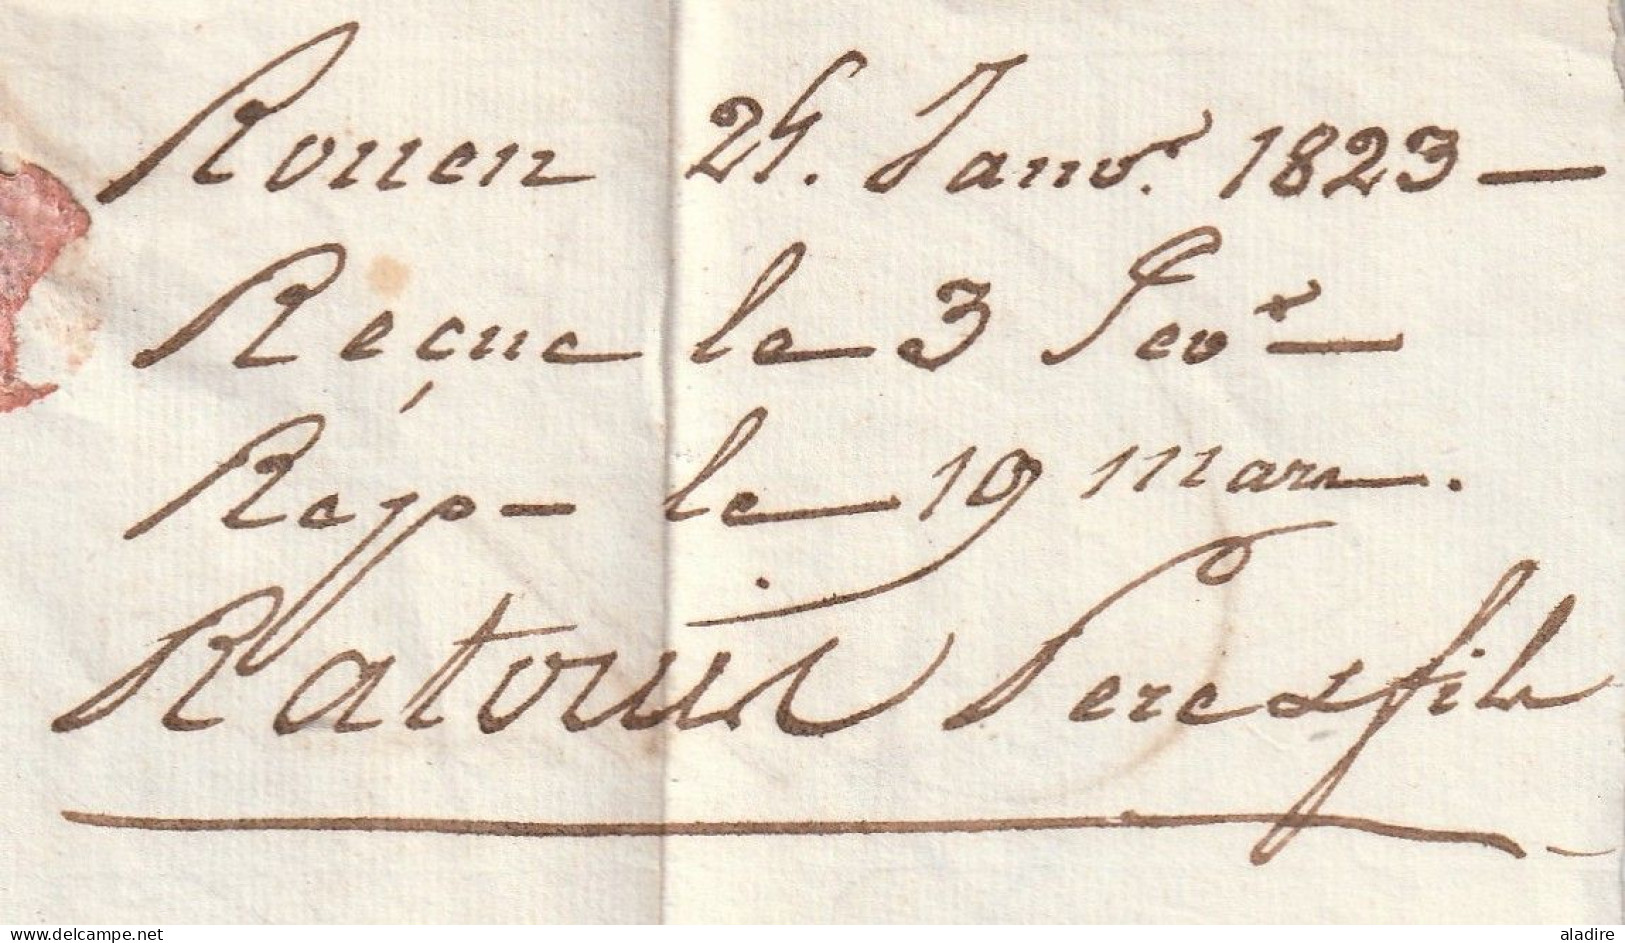 Rouen 24. Janvr. 1823 —
Reçue le 3 Fevr —
Rep — le 19 mars.
Pere & fils
delcampe.net
aladire